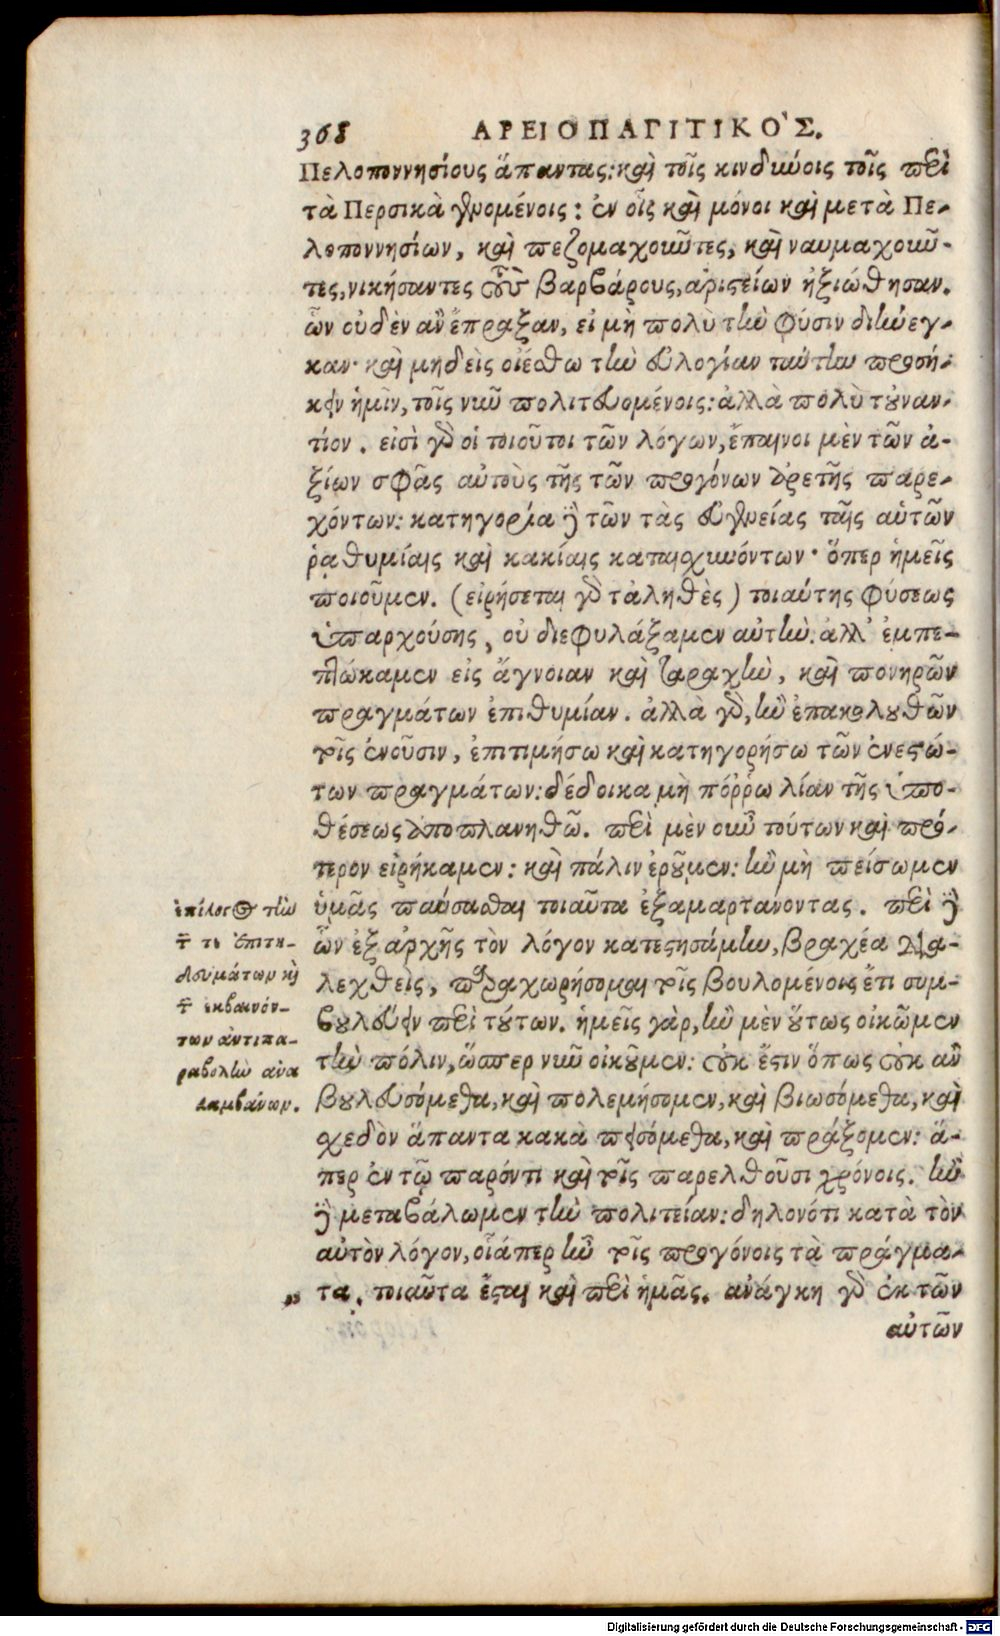 368 ΑΡΕΙΟΠΑΓΙΤΙΚΟ᾽Σ.
Πελοποννησίους ἅπαντας: καὶ τοῖς κινδύνοις τοῖς περὶ
τὰ Περσικὰ γενομένοις: ἐν οἷς καὶ μόνοι καὶ μετὰ Πε-
λοποννησίων, καὶ πεζομαχοῦντες, καὶ ναυμαχοῦν-
τες, νικήσαντες τοὺς βαρβάρους, ἀριστείων ἠξιώθησαν.
ὧν οὐδὲν ἂν ἔπραξαν, εἰ μὴ πολὺ τὴν φύσιν διήνεγ-
καν· καὶ μηδεὶς οἰέσθω τὴν εὐλογίαν ταύτην προσή-
κειν ἡμῖν, τοῖς νῦν πολιτευομένοις: ἀλλὰ πολὺ τοὐναν-
τίον. εἰσὶ γὰρ οἱ τοιοῦτοι τῶν λόγων, ἔπαινοι μὲν τῶν ἀ-
ξίων σφᾶς αὐτοὺς τῆς τῶν προγόνων ἀρετῆς παρε-
χόντων: κατηγορία δὲ τῶν τὰς εὐγενείας ταῖς αὑτῶν
ῥαθυμίαις καὶ κακίαις καταισχυνόντων· ὅπερ ἡμεῖς
ποιοῦμεν. (εἰρήσεται γὰρ τἀληθὲς) τοιαύτης φύσεως
ὑπαρχούσης, οὐ διεφυλάξαμεν αὐτὴν. ἀλλ᾽ ἐμπε-
πτώκαμεν εἰς ἄγνοιαν καὶ ταραχὴν, καὶ πονηρῶν
πραγμάτων ἐπιθυμίαν. ἀλλὰ γὰρ, ἢν ἐπακολουθῶν
τοῖς ἐνοῦσιν, ἐπιτιμήσω καὶ κατηγορήσω τῶν ἐνεστώ-
των πραγμάτων: δέδοικα μὴ πόῤῥω λίαν τῆς ὑπο-
θέσεως ἀποπλανηθῶ. περὶ μὲν οὖν τούτων καὶ πρό-
τερον εἰρήκαμεν: καὶ πάλιν ἐροῦμεν: ἢν μὴ πείσωμεν
ὑμᾶς παύσασθαι τοιαῦτα ἐξαμαρτάνοντας. περὶ δὲ
ὧν ἐξ ἀρχῆς τὸν λόγον κατεστησάμην, βραχέα δια-
λεχθεὶς, παραχωρήσομαι τοῖς βουλομένοις ἔτι συμ-
βουλεύειν περὶ τούτων. ἡμεῖς γὰρ, ἢν μὲν οὕτως οἰκῶμεν
τὴν πόλιν, ὥσπερ νῦν οἰκοῦμεν: οὐκ ἔστιν ὅπως οὐκ ἂν
βουλευσόμεθα, καὶ πολεμήσομεν, καὶ βιωσόμεθα, καὶ
σχεδὸν ἅπαντα κακὰ πεισόμεθα, καὶ πράξομεν: ἅ-
περ ἐν τῷ παρόντι καὶ τοῖς παρελθοῦσι χρόνοις. ἢν
δὲ μεταβάλωμεν τὴν πολιτείαν: δηλονότι κατὰ τὸν
αὐτὸν λόγον, οἷάπερ ἦν τοῖς προγόνοις τὰ πράγμα-
„ τα, τοιαῦτα ἔσται καὶ περὶ ἡμᾶς. ἀνάγκη γὰρ ἐκ τῶν
αὐτῶν
ἐπίλογος τὴν
τῶν τε ἐπιτη-
δευμάτων καὶ
τῶν ἐκβαινόν-
των ἀντιπα-
ραβολὴν ἀνα
λαμβάνων.
Digitalisierung gefördert durch die Deutsche Forschungsgemeinschaft - DFG